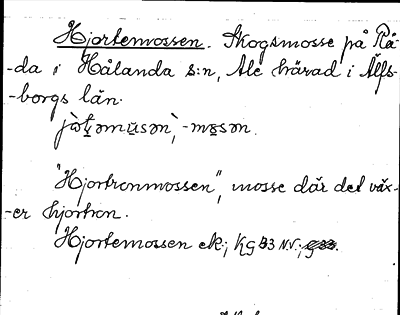 Hjortemossen. Skogsmosse på Rå-
-da i Hålanda s:n, Ale härad i Älfs-
-borgs län.
"Hjortronmossen", mosse där det väx-
-er hjortron.
Hjortemossen ek.; Kg B3 N.V.;